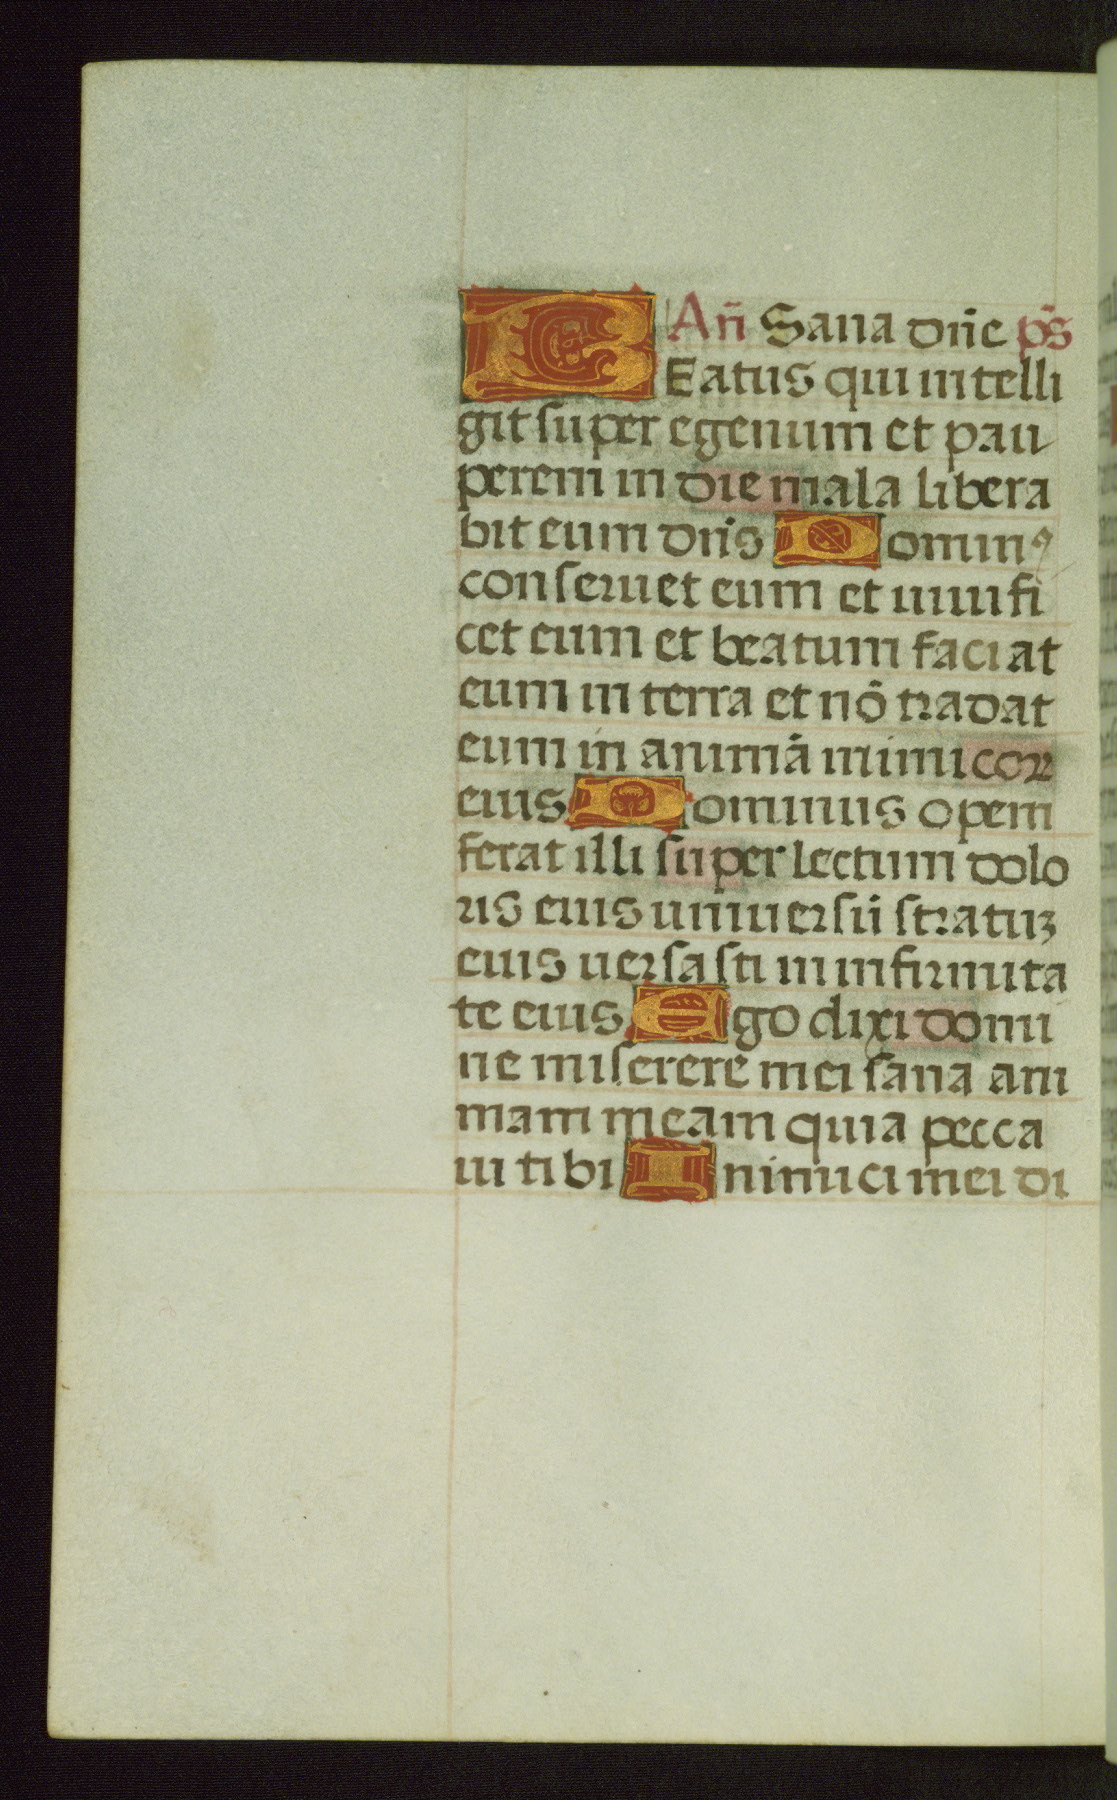 Añ Sana dñe p̃s
BEatus qui intelli
git super egenum et pau
perem in die mala libera
bit eum dñs Dominꝯ
conseruet eum et uiuifi
cet eum et beatum faciat
eum in terra et nõ tradat
eum in animã inimicoꝝ
eius Dominus opem
ferat illi super lectum dolo
ris eius uniuersũ stratuꝫ
eius uersasti in infirmita
te eius Ego dixi domi
ne miserere mei sana ani
mam meam quia pecca
ui tibi Inimici mei di